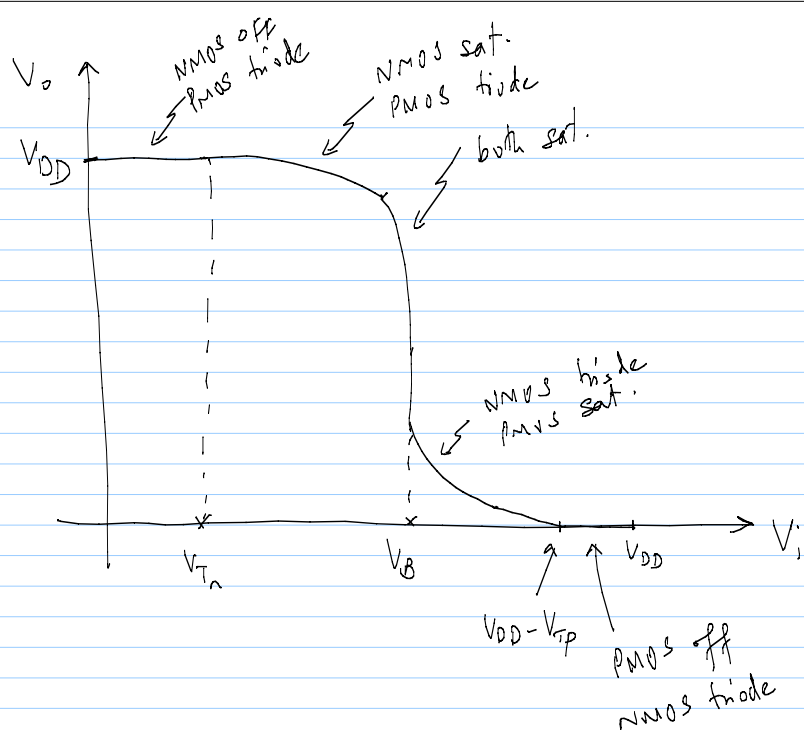 V₀
NMOS off
PMOS triode
NMOS sat.
PMOS triode
both sat.
V_DD
NMOS triode
PMOS sat.
V_Tn
V_B
V_DD
V_i
V_DD - V_Tp
PMOS off
NMOS triode